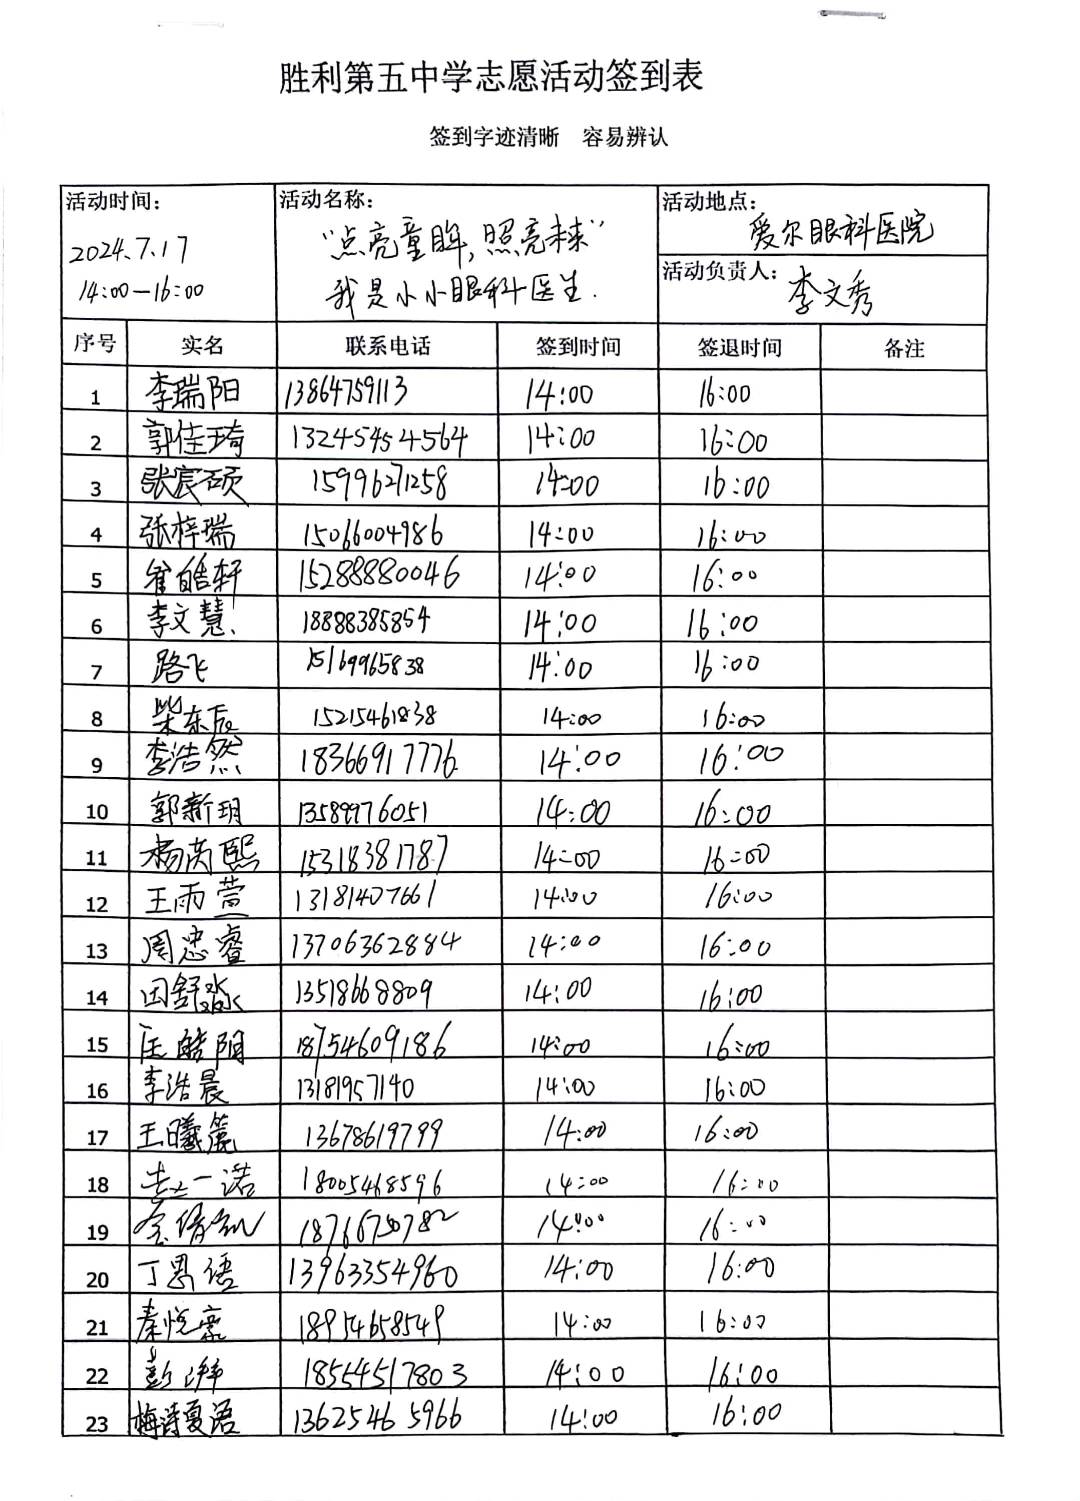 胜利第五中学志愿活动签到表
签到字迹清晰 容易辨认
活动时间:
2024.7.17
14:00—16:00
活动名称:
"点亮童眸,照亮未来"
我是小小眼科医生.
活动地点:
爱尔眼科医院
活动负责人:
李文秀
序号 实名 联系电话 签到时间 签退时间 备注
1 李瑞阳 13864759113 14:00 16:00
2 郭佳琦 13245454564 14:00 16:00
3 张宸硕 15996271258 14:00 16:00
4 张梓瑞 15066004986 14:00 16:00
5 崔皓轩 15288880046 14:00 16:00
6 李文慧 18888385854 14:00 16:00
7 路飞 15169965838 14:00 16:00
8 柴东辰 15215461838 14:00 16:00
9 李浩然 18366917776 14:00 16:00
10 郭新玥 13589976051 14:00 16:00
11 杨芮熙 15318381787 14:00 16:00
12 王雨萱 13181407661 14:00 16:00
13 周忠睿 13706362884 14:00 16:00
14 田舒淼 13518668809 14:00 16:00
15 皓阳 18754609186 14:00 16:00
16 李浩晨 13181957140 14:00 16:00
17 王曦 13678619799 14:00 16:00
18 一诺 18005468596 14:00 16:00
19 14:00 16:00
20 丁思语 13963354960 14:00 16:00
21 秦悦豪 18954658549 14:00 16:00
22 彭湃 18554517803 14:00 16:00
23 梅诗夏语 13625465966 14:00 16:00